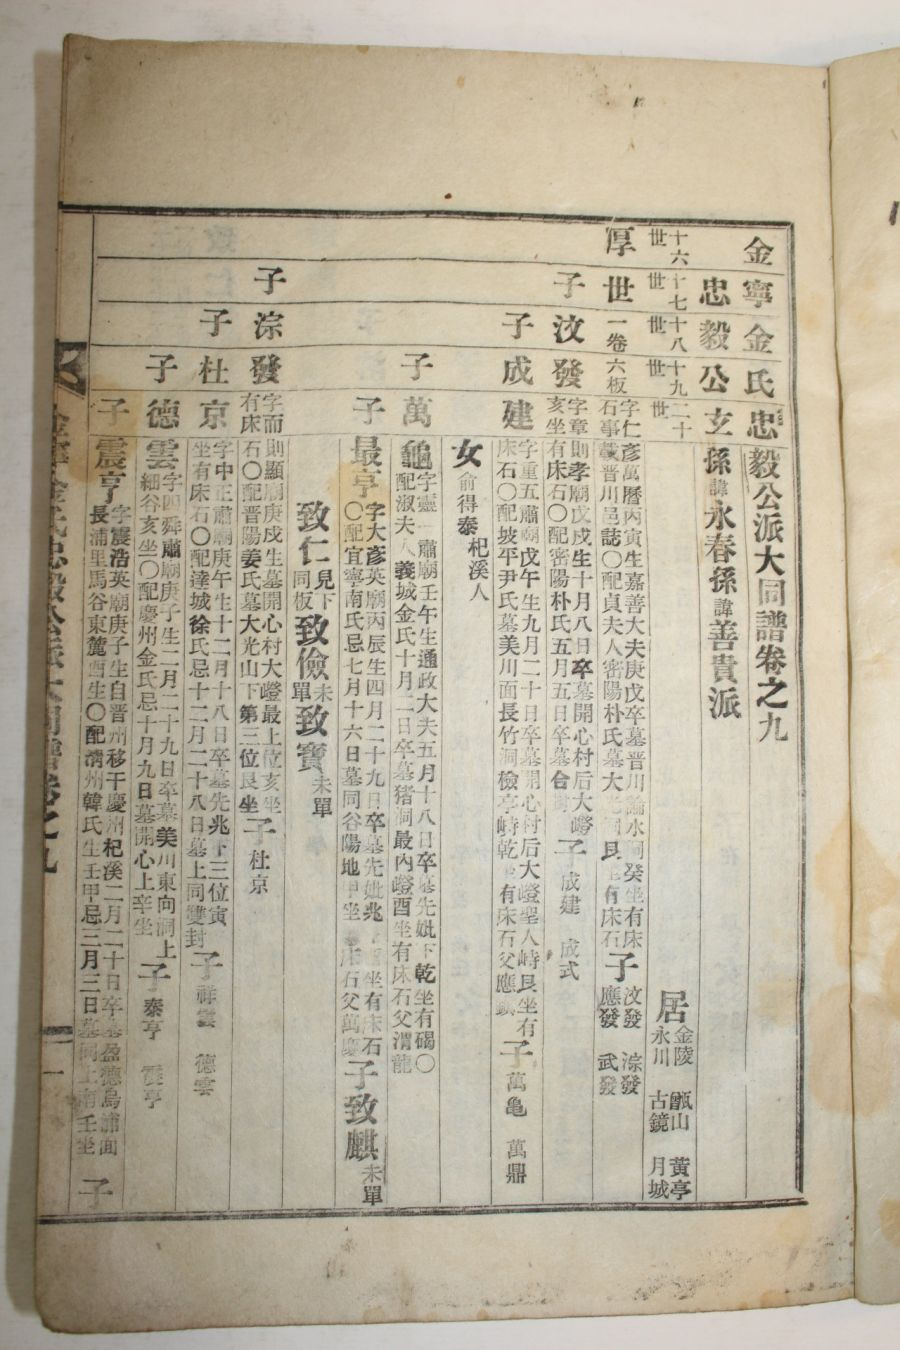 金寧金氏忠毅公派大同譜卷之九
忠毅公玄孫諱永春孫諱善貴派
十六世 十七世 十八世 十九世 二十世
居 金陵 甑山 黃亭 永川 古鏡 月城
厚世 一卷六板 字仁彦萬曆丙寅生嘉善大夫庚戊卒墓晋川 水洞癸坐有床
石事載晋川邑誌〇配貞夫人密陽朴氏墓大 艮坐有床石 子 汶發 淙發 應發 武發
子汶發 字章則孝廟戊戌生十月八日卒墓開心村后大嶝
亥坐有床石〇配密陽朴氏五月五日卒墓合 子 成建 成式
子成建 字重五肅廟戊午生九月二十日卒墓開心村后大嶝聖人峙艮坐有
床石〇配坡平尹氏墓美川面長竹洞檢亭峙乾坐有床石父應 子 萬龜 萬鼎
女 俞得泰杞溪人
子萬龜 字靈一肅廟壬午生通政大夫五月十八日卒墓先妣下乾坐有碣〇
配淑夫人義城金氏十月二日卒墓猪洞最內嶝酉坐有床石父渭龍
子最亨 字大彦英廟丙辰生四月二十九日卒墓先妣兆 坐有床石
〇配宜寧南氏忌七月十六日墓同谷陽地甲坐 床石父萬慶 子致麒 未單
致仁 見下同板 致儉 未單 致寶 未單
子淙發 字而則顯廟庚戌生墓開心村大嶝最上位亥坐
有床石〇配晋陽姜氏墓大光山下第三位艮坐 子 杜京
子杜京 字中正肅廟庚午生十二月十八日卒墓先兆下三位寅
坐有床石〇配達城徐氏忌十二月二十八日墓上同雙封 子 祥雲 德雲
子德雲 字四舜肅廟庚子生二月二十九日卒墓美川東向洞上
細谷亥坐〇配慶州金氏忌十月九日墓開心上辛坐 子 泰亨 震亨
子震亨 字震浩英廟庚子生自晋州移于慶州杞溪二月二十日卒墓盈德烏浦面
長浦里馬谷東麓酉坐〇配淸州韓氏生壬甲忌三月三日墓同上南壬坐 子
金寧金氏忠毅公派大同譜卷之九
一